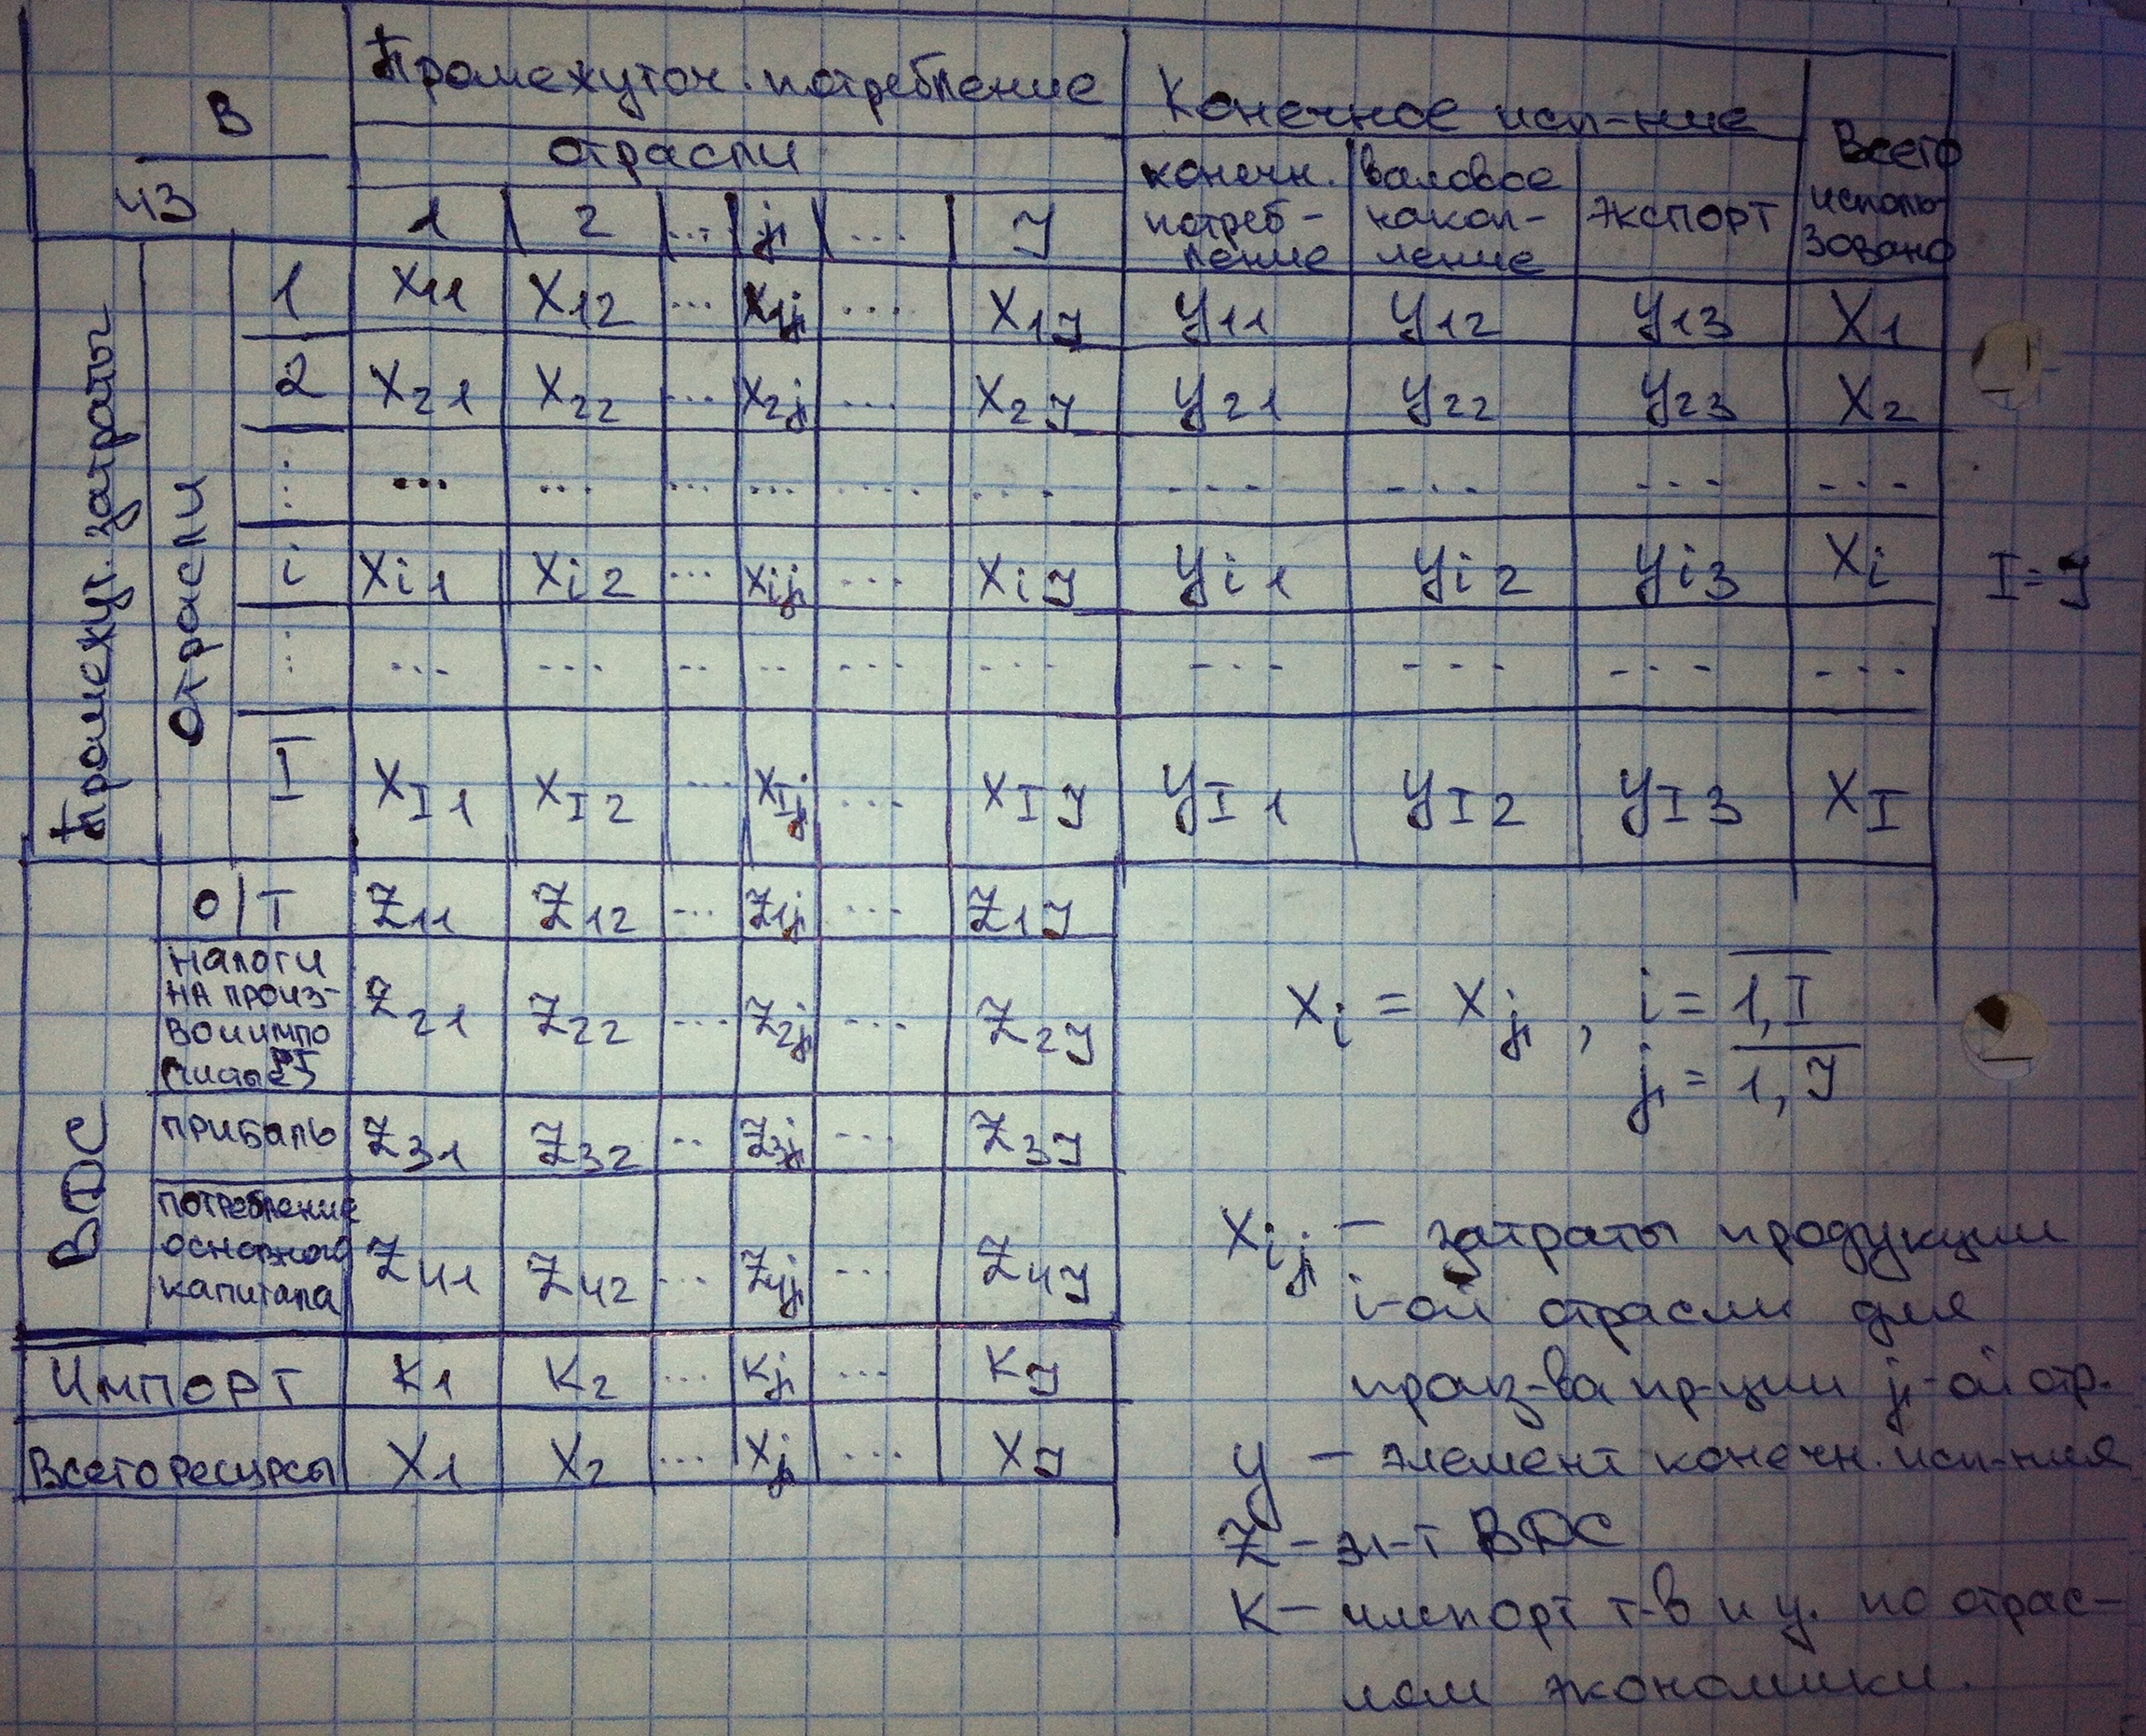 В Промежуточ. потребление Конечное исп-ние Всего использовано
из отрасли конечн. потреб-ление валовое накоп-ление экспорт
1 2 ... j ... J
Промежут. затраты
отрасли
1 X11 X12 ... X1j ... X1J y11 y12 y13 X1
2 X21 X22 ... X2j ... X2J y21 y22 y23 X2
⋮ ... ... ... ... ... ... ... ... ... ...
i Xi1 Xi2 ... Xij ... XiJ yi1 yi2 yi3 Xi I=J
⋮ ... ... ... ... ... ... ... ... ... ...
I XI1 XI2 ... XIj ... XIJ yI1 yI2 yI3 XI
ВДС
О/Т Z11 Z12 ... Z1j ... Z1J
налоги
на произ-
во и импо
рт
(чистые)
Z21 Z22 ... Z2j ... Z2J
прибыль Z31 Z32 ... Z3j ... Z3J
потребление
основного
капитала
Z41 Z42 ... Z4j ... Z4J
Импорт K1 K2 ... Kj ... KJ
Всего ресурсы X1 X2 ... Xj ... XJ
Xi = Xj, i = 1,I
j = 1,J
Xij – затраты продукции
i-ой отрасли для
произ-ва пр-ции j-ой отр.
y – элемент конечн. исп-ния
Z – эл-т ВДС
K – импорт т-в и у. по отрас-
лям экономики.